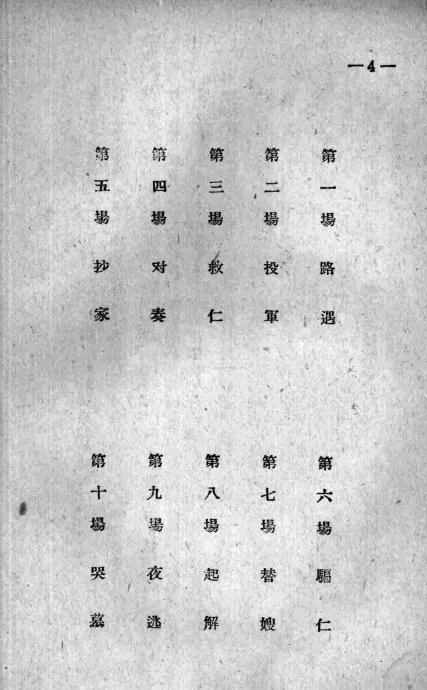 —4—
第一場 路遇
第二場 投軍
第三場 救仁
第四場 对奏
第五場 抄家
第六場 驅仁
第七場 替嫂
第八場 起解
第九場 夜逃
第十場 哭墓